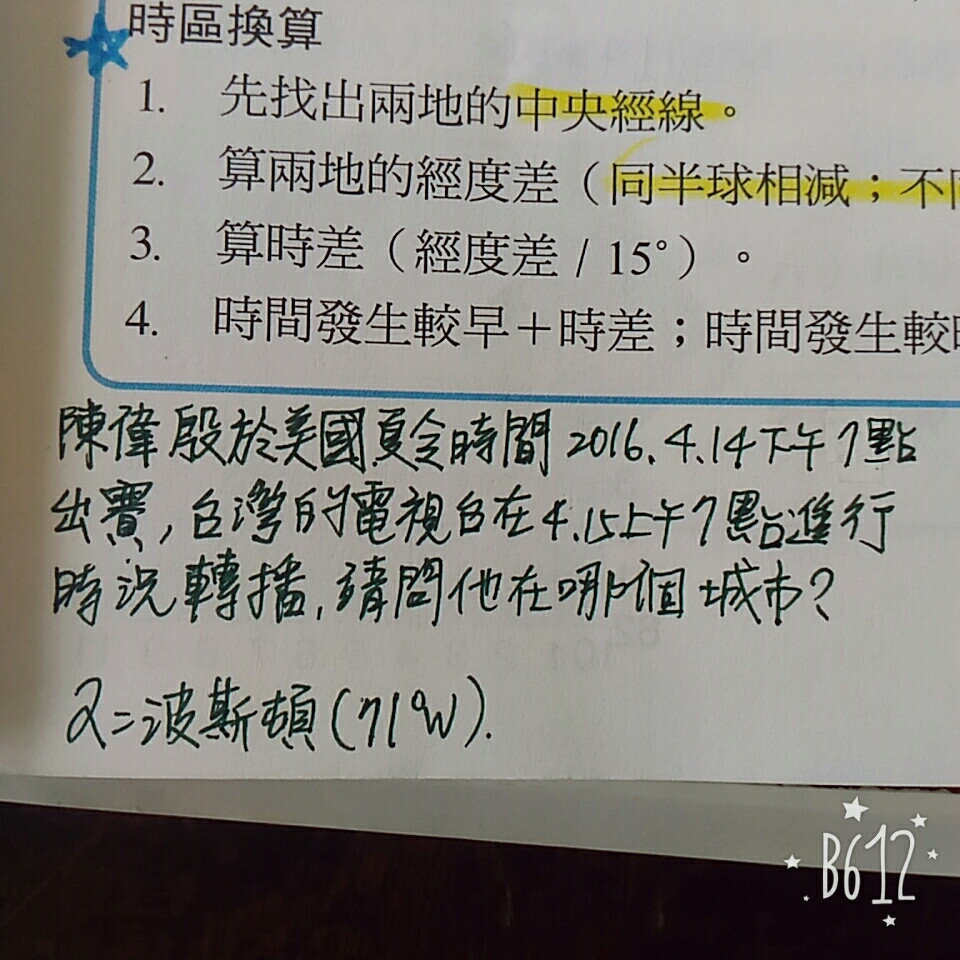 時區換算
1. 先找出兩地的中央經線。
2. 算兩地的經度差（同半球相減；不
3. 算時差（經度差 / 15°）。
4. 時間發生較早＋時差；時間發生較
陳偉殷於美國夏令時間 2016.4.14下午7點
出賽,台灣的電視台在4.15上午7點進行
時況轉播,請問他在哪個城市?
2=波斯頓(71°W).
B612